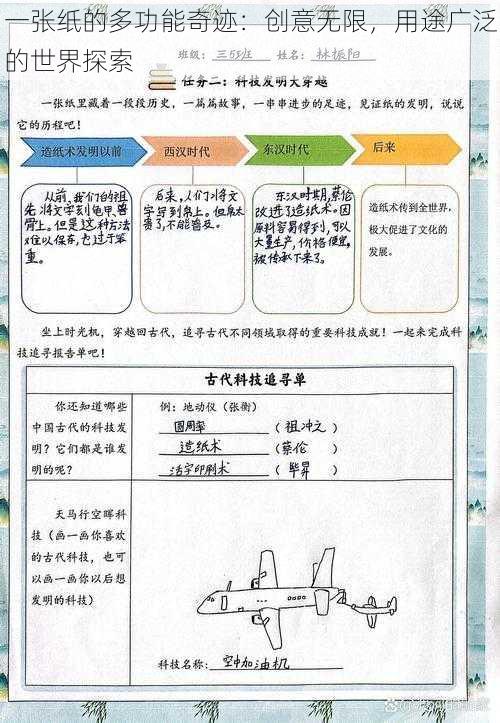 一张纸的多功能奇迹：创意无限，用途广泛
的世界探索
班级：三5班 姓名：林振阳
任务二：科技发明大穿越
一张纸里藏着一段段历史，一篇篇故事，一串串进步的足迹，见证纸的发明，说说
它的历程吧！
造纸术发明以前
西汉时代
东汉时代
后来
从前，我们的祖
先将文字刻龟甲、兽
骨上。但是这种方法
难以保存，也过于笨
重。
后来，人们将文
字写到帛上。但帛太
贵了，不能普及。
东汉时期，蔡伦
改进了造纸术。因
原料容易得到，可以
大量生产，价格便宜，
被传承下来了。
造纸术传到全世界，
极大促进了文化的
发展。
坐上时光机，穿越回古代，追寻古代不同领域取得的重要科技成就！一起来完成科
技追寻报告单吧！
古代科技追寻单
你还知道哪些
中国古代的科技发
明？它们都是谁发
明的呢？
例：地动仪（张衡）
圆周率（祖冲之）
造纸术（蔡伦）
活字印刷术（毕昇）
天马行空晖科
技（画一画你喜欢
的古代科技，也可
以画一画你以后想
发明的科技）
科技名称：空中加油机